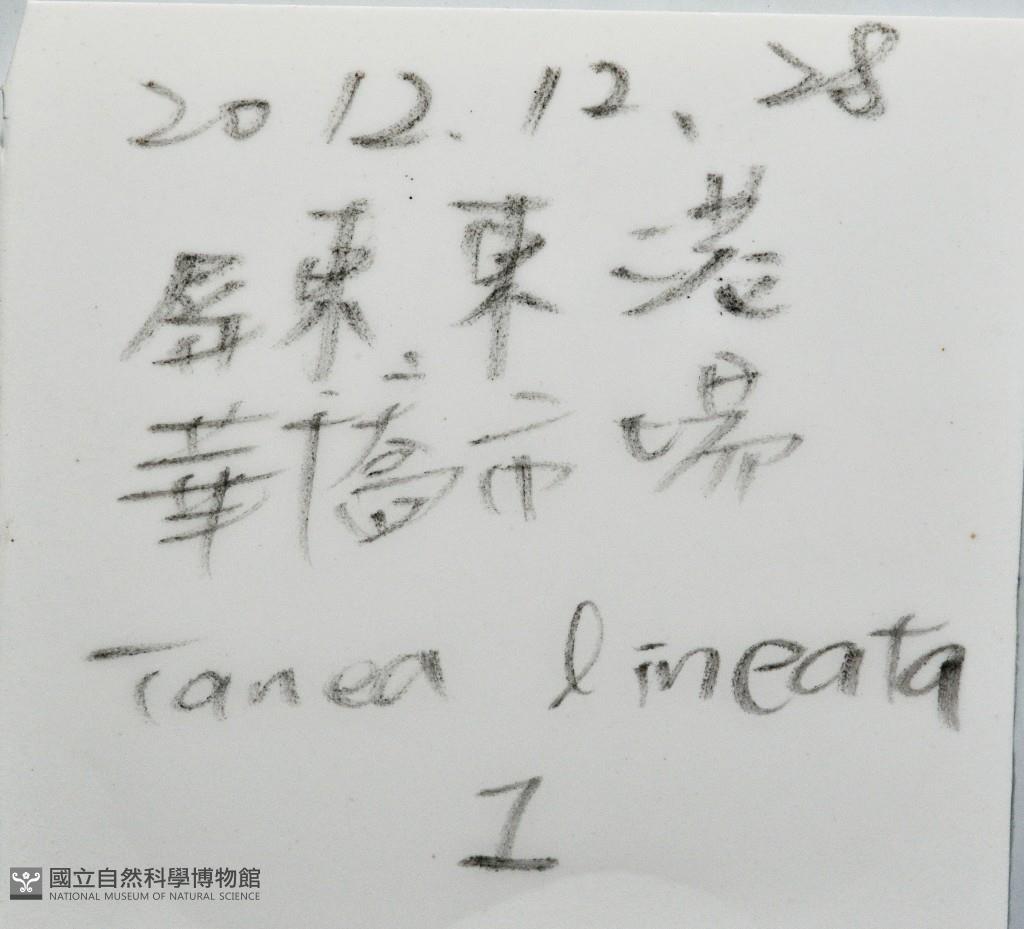 2012.12.28
屏東東港
華僑市場
Tanea lineata
1
國立自然科學博物館
NATIONAL MUSEUM OF NATURAL SCIENCE